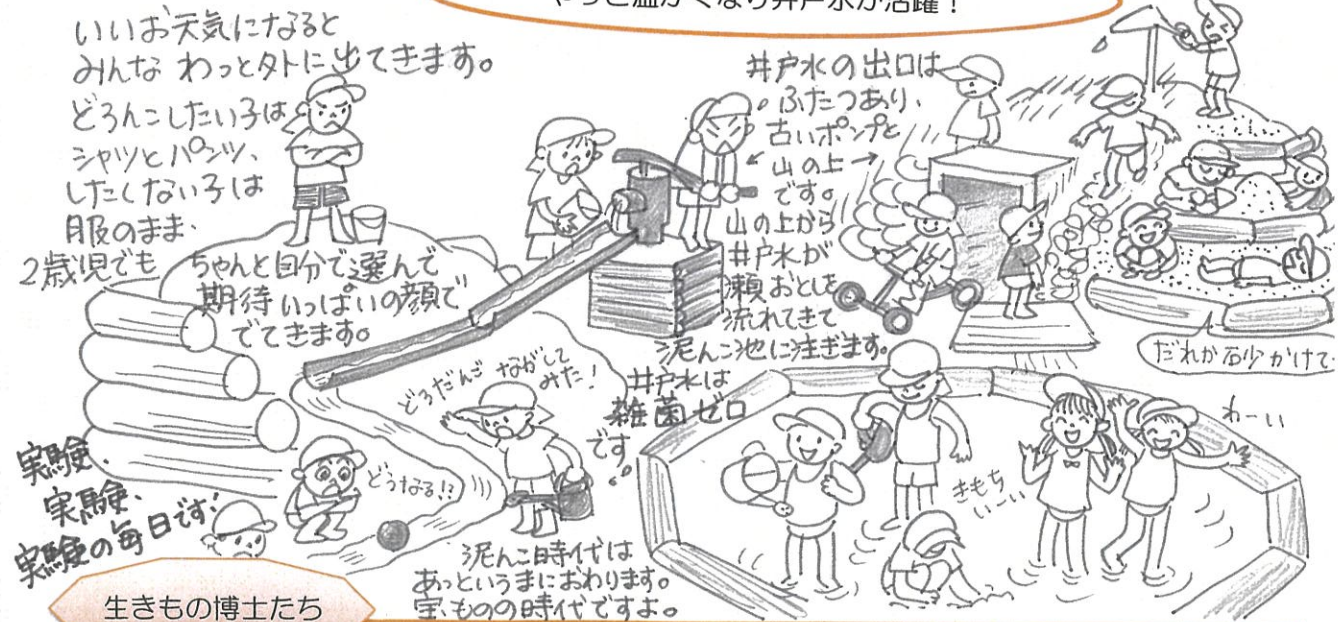 やっと温かくなり井戸水が活躍！
いいお天気になると
みんな わっと外に出てきます。
どろんこしたい子は
シャツとパンツ、
したくない子は
服のまま、
2歳児でも
ちゃんと自分で選んで
期待いっぱいの顔で
でてきます。
井戸水の出口は
ふたつあり、
古いポンプと
← 山の上 →
です。
山の上から
井戸水が
瀬おとしを
流れてきて
泥んこ池に注ぎます。
井戸水は
雑菌ゼロ
です。
だれか砂かけて
どろだんご ながして
みた！
どうなる!?
わーい
きもち
いーい
実験、
実験、
実験の毎日です！
泥んこ時代は
あっというまにおわります。
宝ものの時代ですよ。
生きもの博士たち